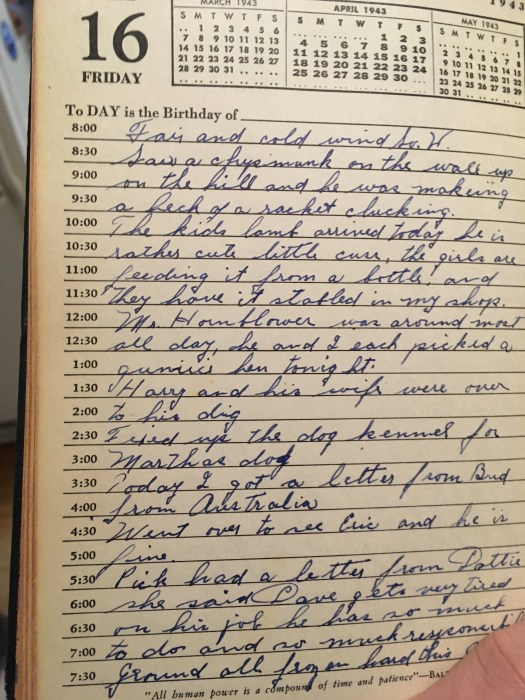 1943
MARCH 1943 APRIL 1943 MAY 1943
S M T W T F S S M T W T F S S M T W T F S
.. 1 2 3 4 5 6 .. .. .. .. 1 2 3
7 8 9 10 11 12 13 4 5 6 7 8 9 10 2 3 4 5 6 7 8
14 15 16 17 18 19 20 11 12 13 14 15 16 17 9 10 11 12 13 14 15
21 22 23 24 25 26 27 18 19 20 21 22 23 24 16 17 18 19 20 21 22
28 29 30 31 .. .. .. 25 26 27 28 29 30 .. 23 24 25 26 27 28 29
30 31 .. .. .. .. ..
16
FRIDAY
To DAY is the Birthday of
8:00 Fair and cold wind So. W.
8:30 Saw a chysmunk on the wall up
9:00 on the hill and he was makeing
9:30 a heck of a racket clucking.
10:00 The kids lamb arrived today he is
10:30 rather cute little cuss, the girls are
11:00 feeding it from a bottle, and
11:30 they have it stabled in my shop.
12:00 Mr. Hornblower was around most
12:30 all day, he and I each picked a
1:00 hen tonight.
1:30 Harry and his wife were over
2:00 to his dig
2:30 Fixed up the dog kennel for
3:00 Marthas dog
3:30 Today I got a letter from Bud
4:00 from Australia
4:30 Went over to see Eric and he is
5:00 fine.
5:30 Pick had a letter from Dottie
6:00 she said Dave gets very tired
6:30 on his job he has so much
7:00 to do and so much
7:30 Ground all frozen hard this
"All human power is a compound of time and patience"—